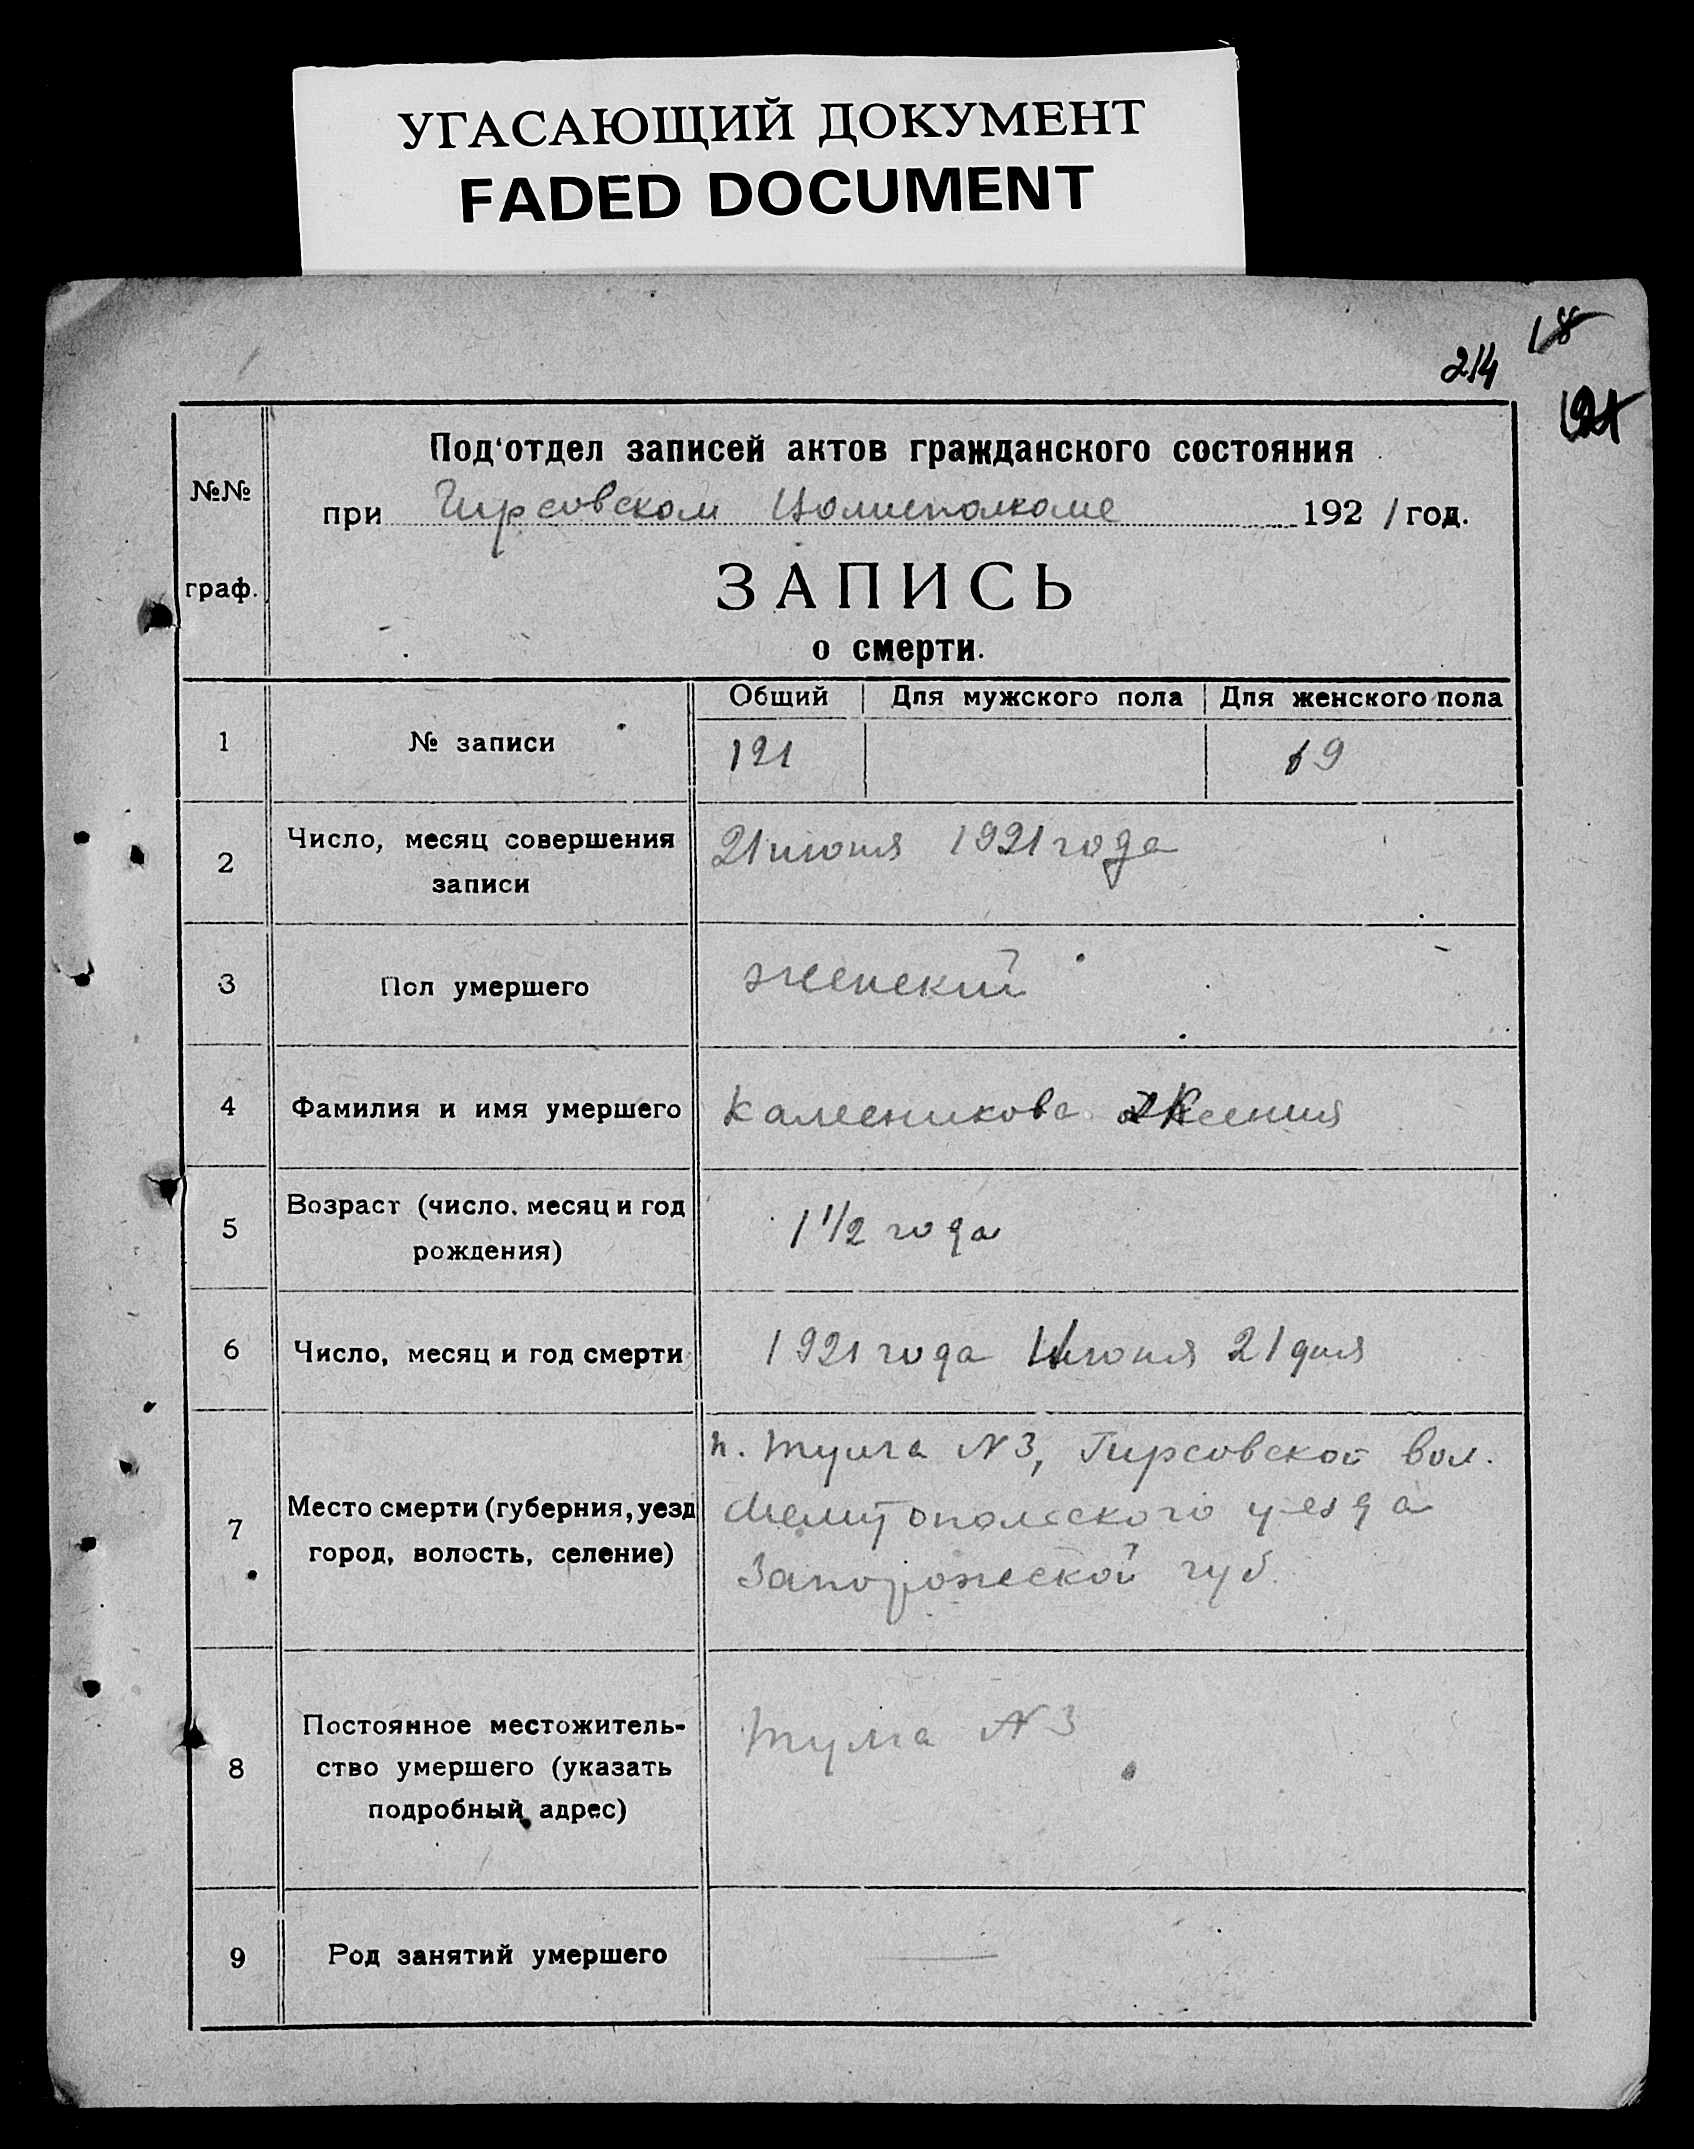 УГАСАЮЩИЙ ДОКУМЕНТ
FADED DOCUMENT
18
214
121
Под‘отдел записей актов гражданского состояния
№№ граф.
при Гирсовском Волисполкоме 1921 год.
ЗАПИСЬ
о смерти.
Общий Для мужского пола Для женского пола
1 № записи 121 69
2 Число, месяц совершения 21 июня 1921 года
записи
3 Пол умершего женский
4 Фамилия и имя умершего Калесникова Ксения
5 Возраст (число, месяц и год 1 1/2 года
рождения)
6 Число, месяц и год смерти 1921 года Июня 21 дня
п. №3, Гирсовской вол.
7 Место смерти (губерния, уезд Мелитопольского уезда
город, волость, селение) Запорожской губ.
8 Постоянное местожитель- №3
ство умершего (указать
подробный адрес)
9 Род занятий умершего —